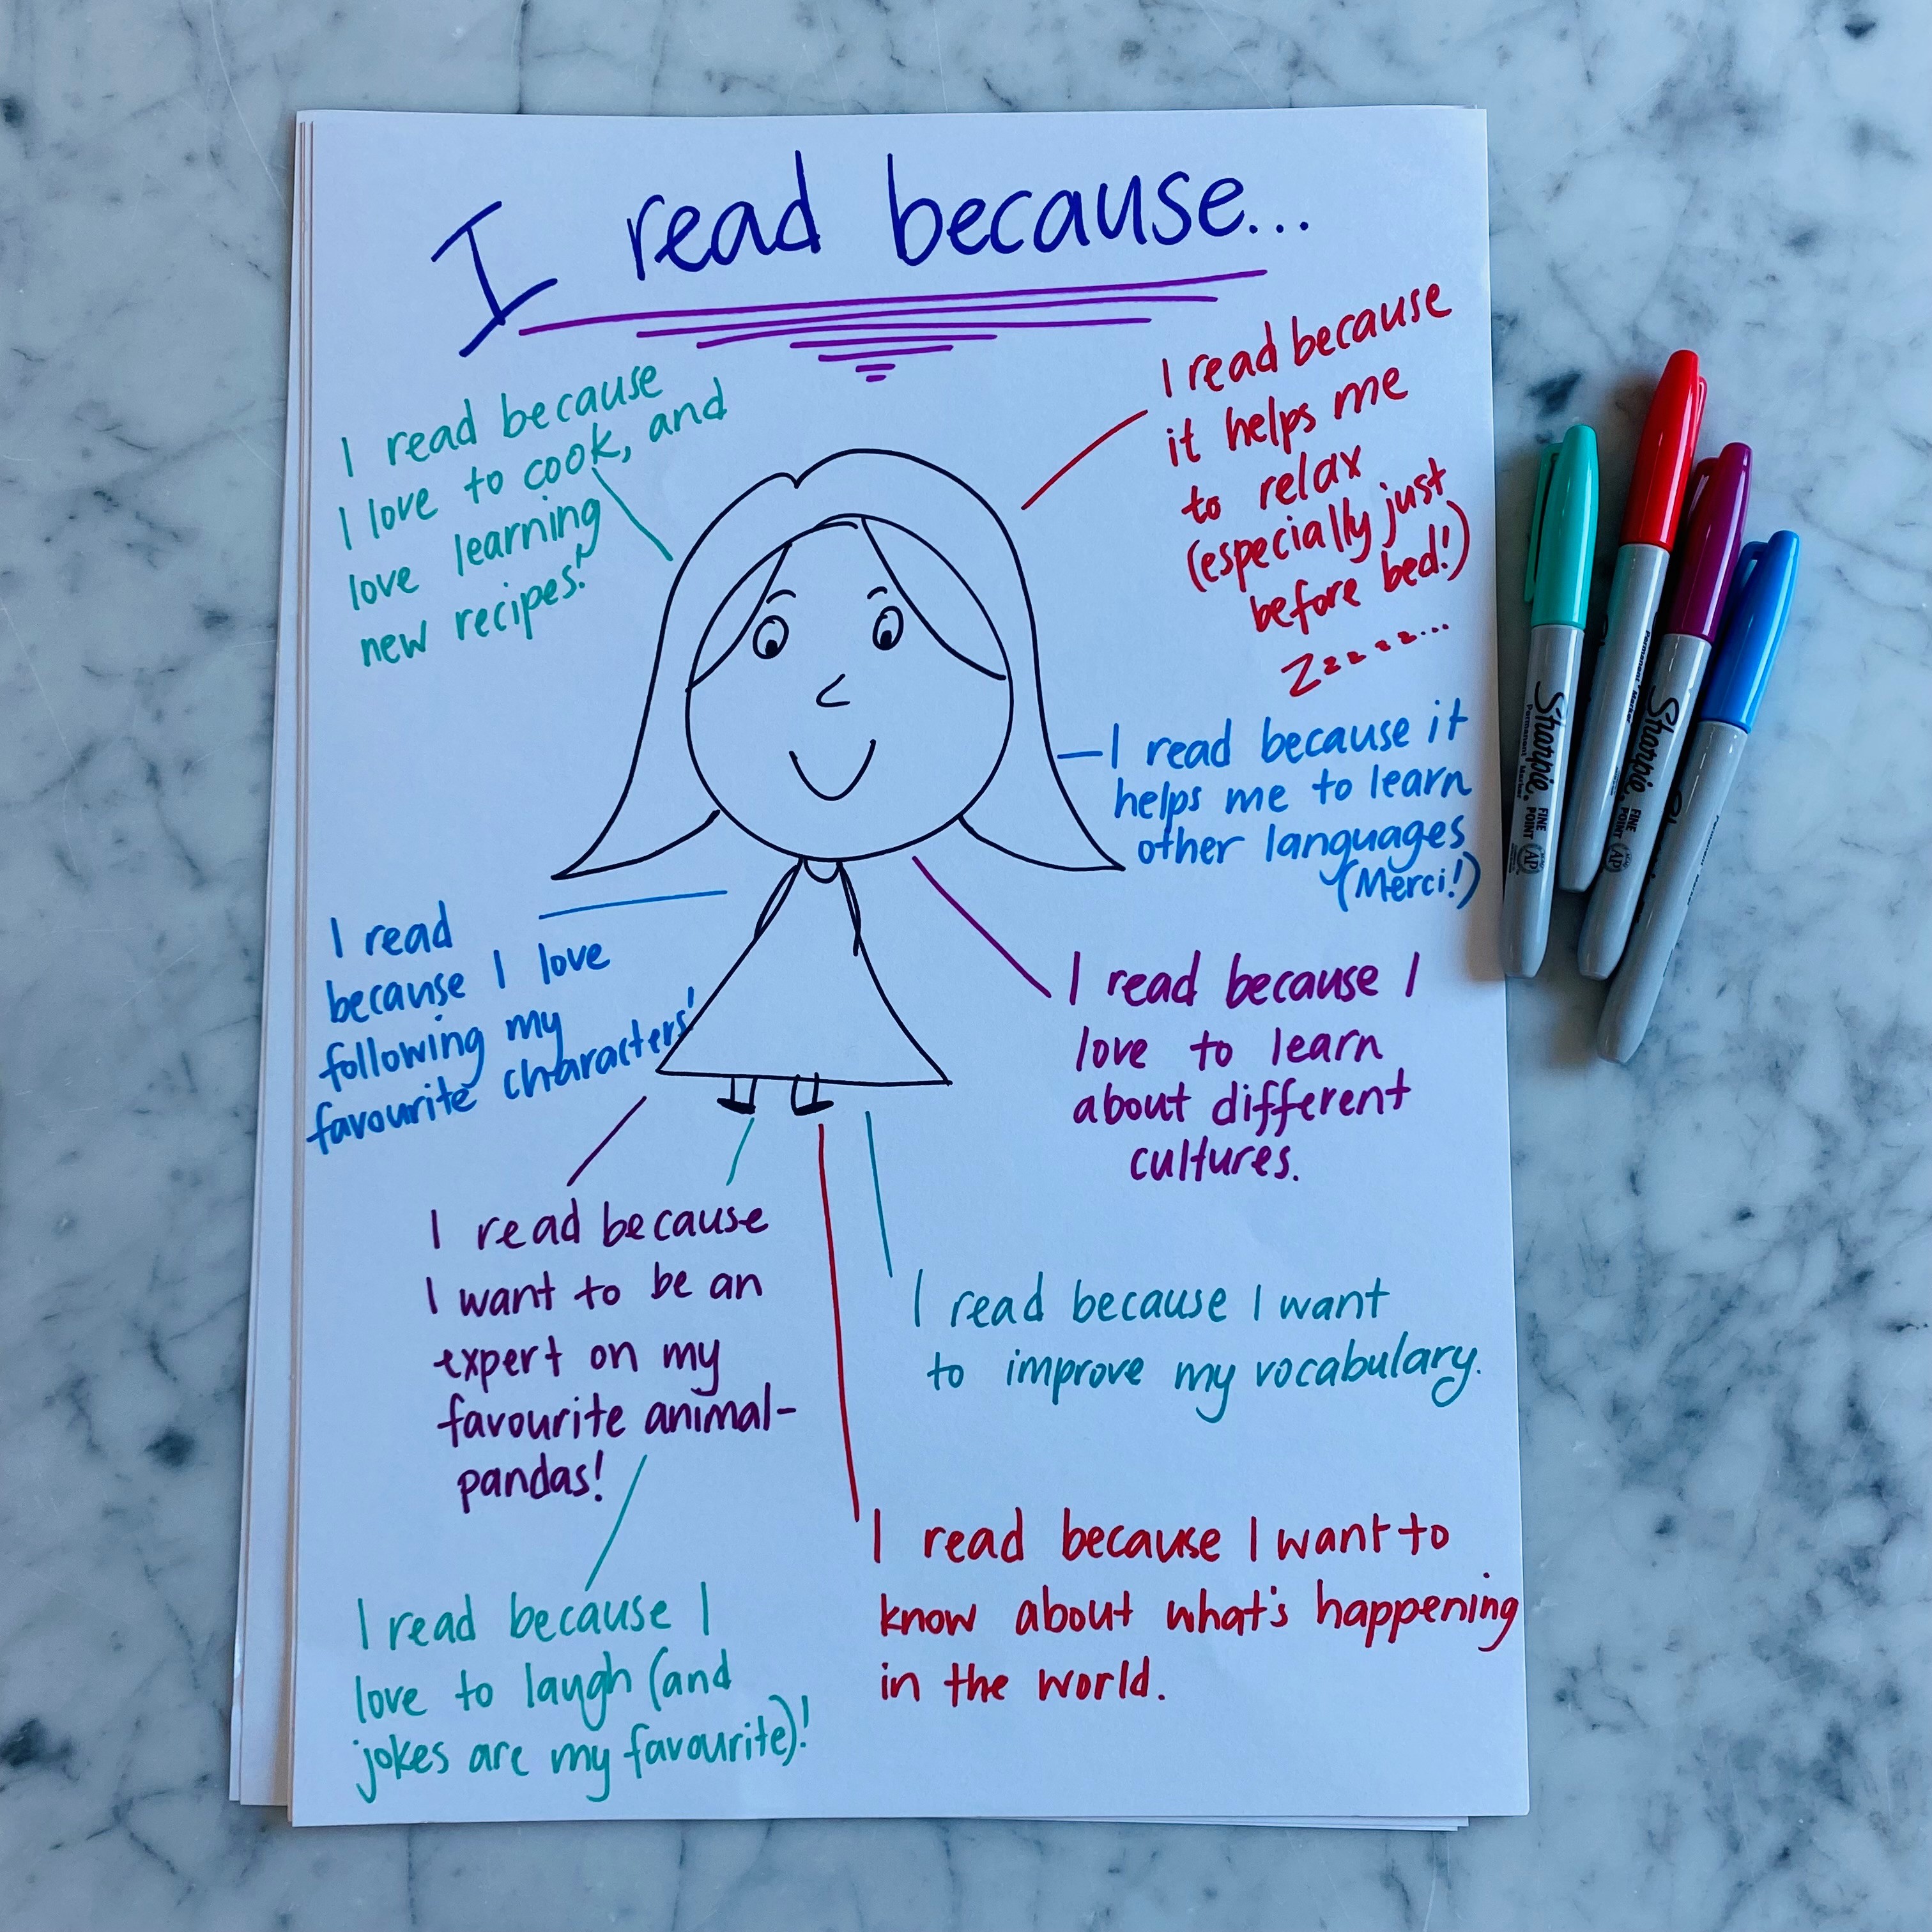 I read because...
I read because
I love to cook, and
love learning
new recipes!
I read because
it helps me
to relax
(especially just
before bed!)
Zzzzz...
I read because it
helps me to learn
other languages
(Merci!)
I read
because I love
following my
favourite characters!
I read because I
love to learn
about different
cultures.
I read because
I want to be an
expert on my
favourite animal-
pandas!
I read because I want
to improve my vocabulary.
I read because I
love to laugh (and
jokes are my favourite)!
I read because I want to
know about what's happening
in the world.
Sharpie.
Permanent Marker
FINE
POINT
AP
Permanent Marker
Sharpie.
FINE
POINT
AP